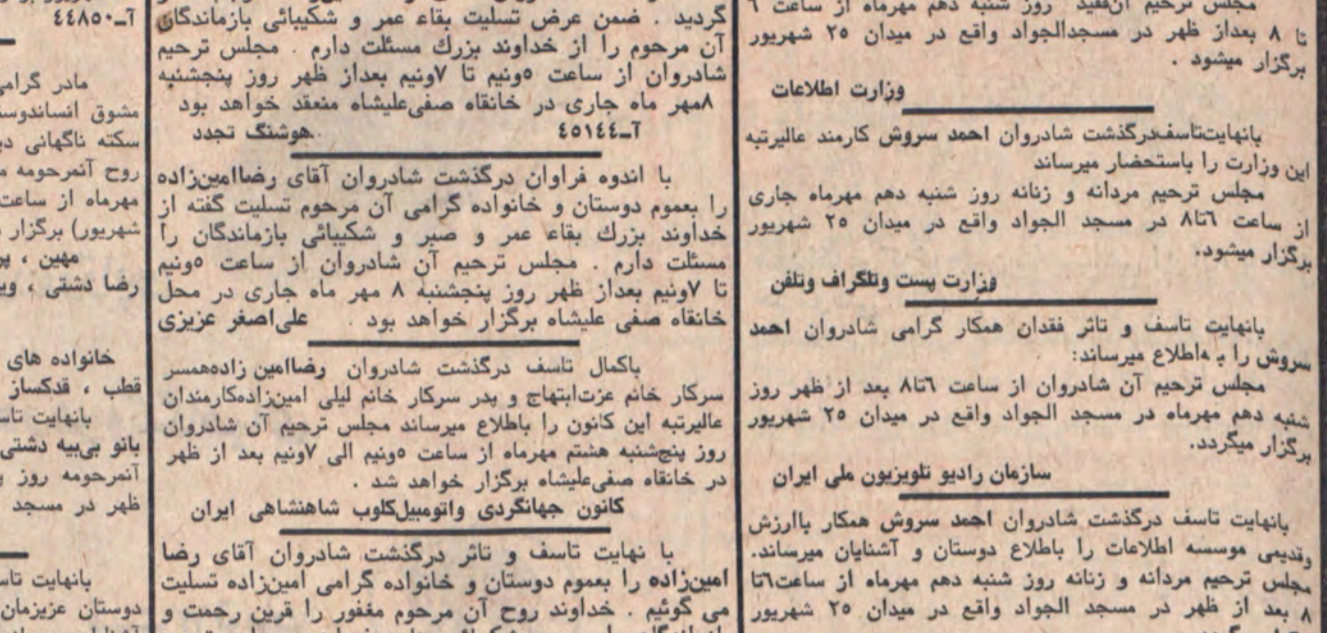 مجلس ترحیم آنفقید روز شنبه دهم مهرماه از ساعت ٦
تا ٨ بعداز ظهر در مسجدالجواد واقع در میدان ٢٥ شهریور
برگزار میشود .
وزارت اطلاعات
بانهایت‌تاسف‌درگذشت شادروان احمد سروش کارمند عالیرتبه
این وزارت را باستحضار میرساند
مجلس ترحیم مردانه و زنانه روز شنبه دهم مهرماه جاری
از ساعت ٦تا٨ در مسجد الجواد واقع در میدان ٢٥ شهریور
برگزار میشود.
وزارت پست وتلگراف وتلفن
بانهایت تاسف و تاثر فقدان همکار گرامی شادروان احمد
سروش را به اطلاع میرساند:
مجلس ترحیم آن شادروان از ساعت ٦تا٨ بعد از ظهر روز
شنبه دهم مهرماه در مسجد الجواد واقع در میدان ٢٥ شهریور
برگزار میگردد.
سازمان رادیو تلویزیون ملی ایران
بانهایت تاسف درگذشت شادروان احمد سروش همکار باارزش
وقدیمی موسسه اطلاعات را باطلاع دوستان و آشنایان میرساند.
مجلس ترحیم مردانه و زنانه روز شنبه دهم مهرماه از ساعت٦تا
٨ بعد از ظهر در مسجد الجواد واقع در میدان ٢٥ شهریور
گردید . ضمن عرض تسلیت بقاء عمر و شکیبائی بازماندگان
آن مرحوم را از خداوند بزرك مسئلت دارم . مجلس ترحیم
شادروان از ساعت ٥ونیم تا ٧ونیم بعداز ظهر روز پنجشنبه
٨مهر ماه جاری در خانقاه صفی‌علیشاه منعقد خواهد بود
آ-٤٥١٤٤ هوشنگ تجدد
با اندوه فراوان درگذشت شادروان آقای رضاامین‌زاده
را بعموم دوستان و خانواده گرامی آن مرحوم تسلیت گفته از
خداوند بزرك بقاء عمر و صبر و شکیبائی بازماندگان را
مسئلت دارم . مجلس ترحیم آن شادروان از ساعت ٥ونیم
تا ٧ونیم بعداز ظهر روز پنجشنبه ٨ مهر ماه جاری در محل
خانقاه صفی علیشاه برگزار خواهد بود . علی‌اصغر عزیزی
باکمال تاسف درگذشت شادروان رضاامین زاده‌همسر
سرکار خانم عزت‌ابتهاج و پدر سرکار خانم لیلی امین‌زاده‌کارمندان
عالیرتبه این کانون را باطلاع میرساند مجلس ترحیم آن شادروان
روز پنج‌شنبه هشتم مهرماه از ساعت ٥ونیم الی ٧ونیم بعد از ظهر
در خانقاه صفی‌علیشاه برگزار خواهد شد .
کانون جهانگردی واتومبیل‌کلوب شاهنشاهی ایران
با نهایت تاسف و تاثر درگذشت شادروان آقای رضا
امین‌زاده را بعموم دوستان و خانواده گرامی امین‌زاده تسلیت
می گوئیم . خداوند روح آن مرحوم مغفور را قرین رحمت و
آ-٤٤٨٥٠
مادر گرامی
مشوق انساندوست
سکته ناگهانی
روح آنمرحومه
مهرماه از ساعت
شهریور) برگزار
مهین ،
رضا دشتی ،
خانواده های
قطب ، قدکساز
بانهایت
بانو بی‌بیه دشتی
آنمرحومه روز
ظهر در مسجد
بانهایت
دوستان عزیزمان